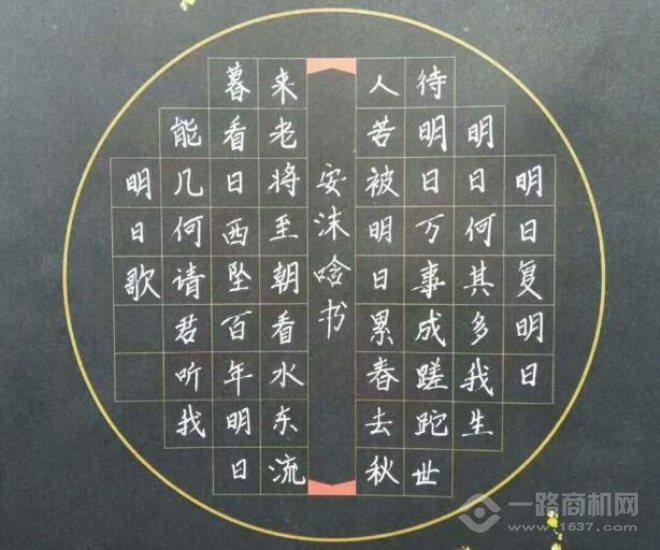 明日复明日
明日何其多我生
待明日万事成蹉跎世
人若被明日累春去秋
安沫啥书
来老将至朝看水东流
暮看日西坠百年明日
能几何请君听我
明日歌
一路商机网
www.1637.com